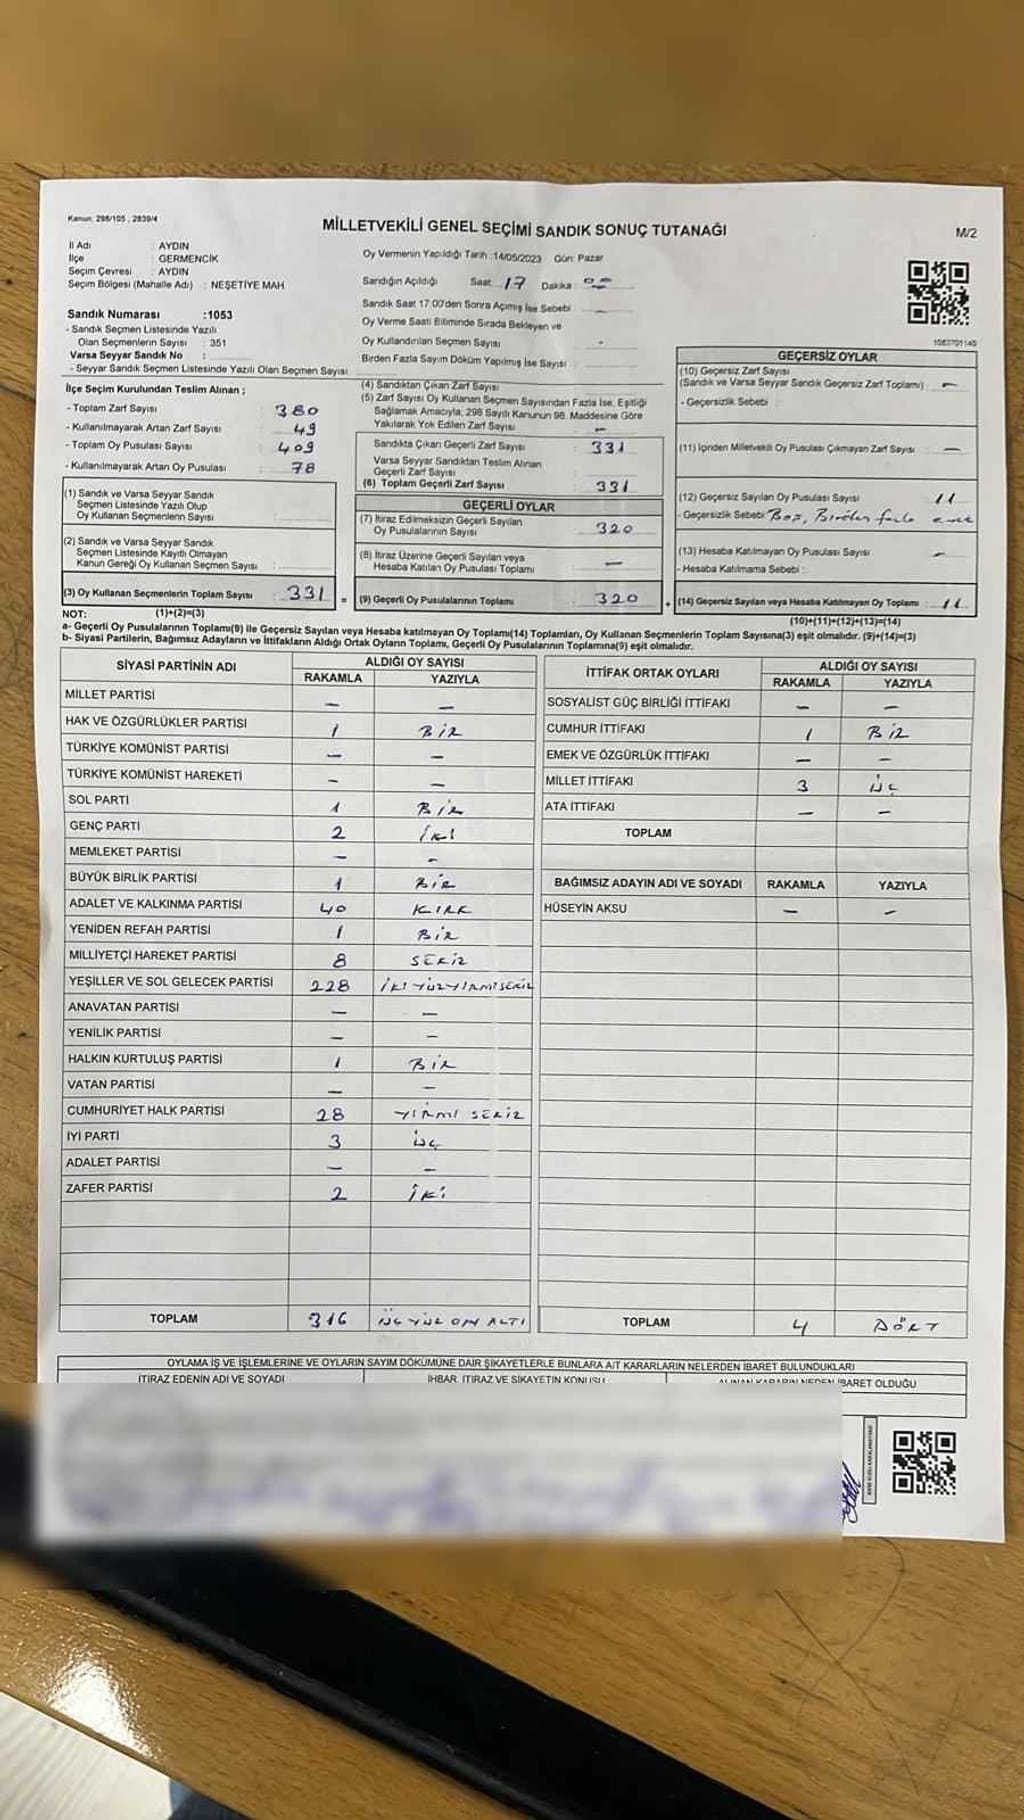 Kanun: 298/105 ; 2839/4
MİLLETVEKİLİ GENEL SEÇİMİ SANDIK SONUÇ TUTANAĞI
M/2
İl Adı : AYDIN
İlçe : GERMENCİK
Seçim Çevresi : AYDIN
Seçim Bölgesi (Mahalle Adı) : NEŞETİYE MAH.
Sandık Numarası :1053
- Sandık Seçmen Listesinde Yazılı
Olan Seçmenlerin Sayısı : 351
Varsa Seyyar Sandık No :
- Seyyar Sandık Seçmen Listesinde Yazılı Olan Seçmen Sayısı:
Oy Vermenin Yapıldığı Tarih :14/05/2023 Gün: Pazar
Sandığın Açıldığı Saat 17 Dakika : 00
Sandık Saat 17:00'den Sonra Açımış İse Sebebi : —
Oy Verme Saati Bitiminde Sırada Bekleyen ve
Oy Kullandırılan Seçmen Sayısı : -
Birden Fazla Sayım Döküm Yapılmış İse Sayısı :
İlçe Seçim Kurulundan Teslim Alınan ;
- Toplam Zarf Sayısı : 380
- Kullanılmayarak Artan Zarf Sayısı : 49
- Toplam Oy Pusulası Sayısı : 409
- Kullanılmayarak Artan Oy Pusulası : 78
(1) Sandık ve Varsa Seyyar Sandık
Seçmen Listesinde Yazılı Olup
Oy Kullanan Seçmenlerin Sayısı :
(2) Sandık ve Varsa Seyyar Sandık
Seçmen Listesinde Kayıtlı Olmayan
Kanun Gereği Oy Kullanan Seçmen Sayısı :
(3) Oy Kullanan Seçmenlerin Toplam Sayısı : 331 =
(4) Sandıktan Çıkan Zarf Sayısı
(5) Zarf Sayısı Oy Kullanan Seçmen Sayısından Fazla İse, Eşitliği
Sağlamak Amacıyla, 298 Sayılı Kanunun 98. Maddesine Göre
Yakılarak Yok Edilen Zarf Sayısı : —
Sandıkta Çıkan Geçerli Zarf Sayısı : 331
Varsa Seyyar Sandıktan Teslim Alınan
Geçerli Zarf Sayısı :
(6) Toplam Geçerli Zarf Sayısı : 331
GEÇERLİ OYLAR
(7) İtiraz Edilmeksizin Geçerli Sayılan
Oy Pusulalarının Sayısı : 320
(8) İtiraz Üzerine Geçerli Sayılan veya
Hesaba Katılan Oy Pusulası Toplamı : —
(9) Geçerli Oy Pusulalarının Toplamı : 320 +
GEÇERSİZ OYLAR
(10) Geçersiz Zarf Sayısı
(Sandık ve Varsa Seyyar Sandık Geçersiz Zarf Toplamı) : —
- Geçersizlik Sebebi :
(11) İçinden Milletvekili Oy Pusulası Çıkmayan Zarf Sayısı : —
(12) Geçersiz Sayılan Oy Pusulası Sayısı : 11
- Geçersizlik Sebebi : Boş, Birden fazla
(13) Hesaba Katılmayan Oy Pusulası Sayısı : —
- Hesaba Katılmama Sebebi :
(14) Geçersiz Sayılan veya Hesaba Katılmayan Oy Toplamı : 11
NOT: (1)+(2)=(3)
(10)+(11)+(12)+(13)=(14)
a- Geçerli Oy Pusulalarının Toplamı(9) ile Geçersiz Sayılan veya Hesaba katılmayan Oy Toplamı(14) Toplamları, Oy Kullanan Seçmenlerin Toplam Sayısına(3) eşit olmalıdır. (9)+(14)=(3)
b- Siyasi Partilerin, Bağımsız Adayların ve İttifakların Aldığı Ortak Oyların Toplamı, Geçerli Oy Pusulalarının Toplamına(9) eşit olmalıdır.
SİYASİ PARTİNİN ADI ALDIĞI OY SAYISI
RAKAMLA YAZIYLA
MİLLET PARTİSİ — —
HAK VE ÖZGÜRLÜKLER PARTİSİ 1 BİR
TÜRKİYE KOMÜNİST PARTİSİ — —
TÜRKİYE KOMÜNİST HAREKETİ — —
SOL PARTİ 1 BİR
GENÇ PARTİ 2 İKİ
MEMLEKET PARTİSİ — -
BÜYÜK BİRLİK PARTİSİ 1 BİR
ADALET VE KALKINMA PARTİSİ 40 KIRK
YENİDEN REFAH PARTİSİ 1 BİR
MİLLİYETÇİ HAREKET PARTİSİ 8 SEKİZ
YEŞİLLER VE SOL GELECEK PARTİSİ 228 İKİYÜZYİRMİSEKİZ
ANAVATAN PARTİSİ — —
YENİLİK PARTİSİ — —
HALKIN KURTULUŞ PARTİSİ 1 BİR
VATAN PARTİSİ — —
CUMHURİYET HALK PARTİSİ 28 YİRMİ SEKİZ
İYİ PARTİ 3 ÜÇ
ADALET PARTİSİ — —
ZAFER PARTİSİ 2 İKİ
TOPLAM 316 ÜÇ YÜZ ON ALTI
İTTİFAK ORTAK OYLARI ALDIĞI OY SAYISI
RAKAMLA YAZIYLA
SOSYALİST GÜÇ BİRLİĞİ İTTİFAKI — —
CUMHUR İTTİFAKI 1 BİR
EMEK VE ÖZGÜRLÜK İTTİFAKI — —
MİLLET İTTİFAKI 3 ÜÇ
ATA İTTİFAKI — —
TOPLAM
BAĞIMSIZ ADAYIN ADI VE SOYADI RAKAMLA YAZIYLA
HÜSEYİN AKSU — —
TOPLAM 4 DÖRT
OYLAMA İŞ VE İŞLEMLERİNE VE OYLARIN SAYIM DÖKÜMÜNE DAİR ŞİKAYETLERLE BUNLARA AİT KARARLARIN NELERDEN İBARET BULUNDUKLARI
İTİRAZ EDENİN ADI VE SOYADI İHBAR, İTİRAZ VE ŞİKAYETİN KONUSU ALINAN KARARIN NEDEN İBARET OLDUĞU